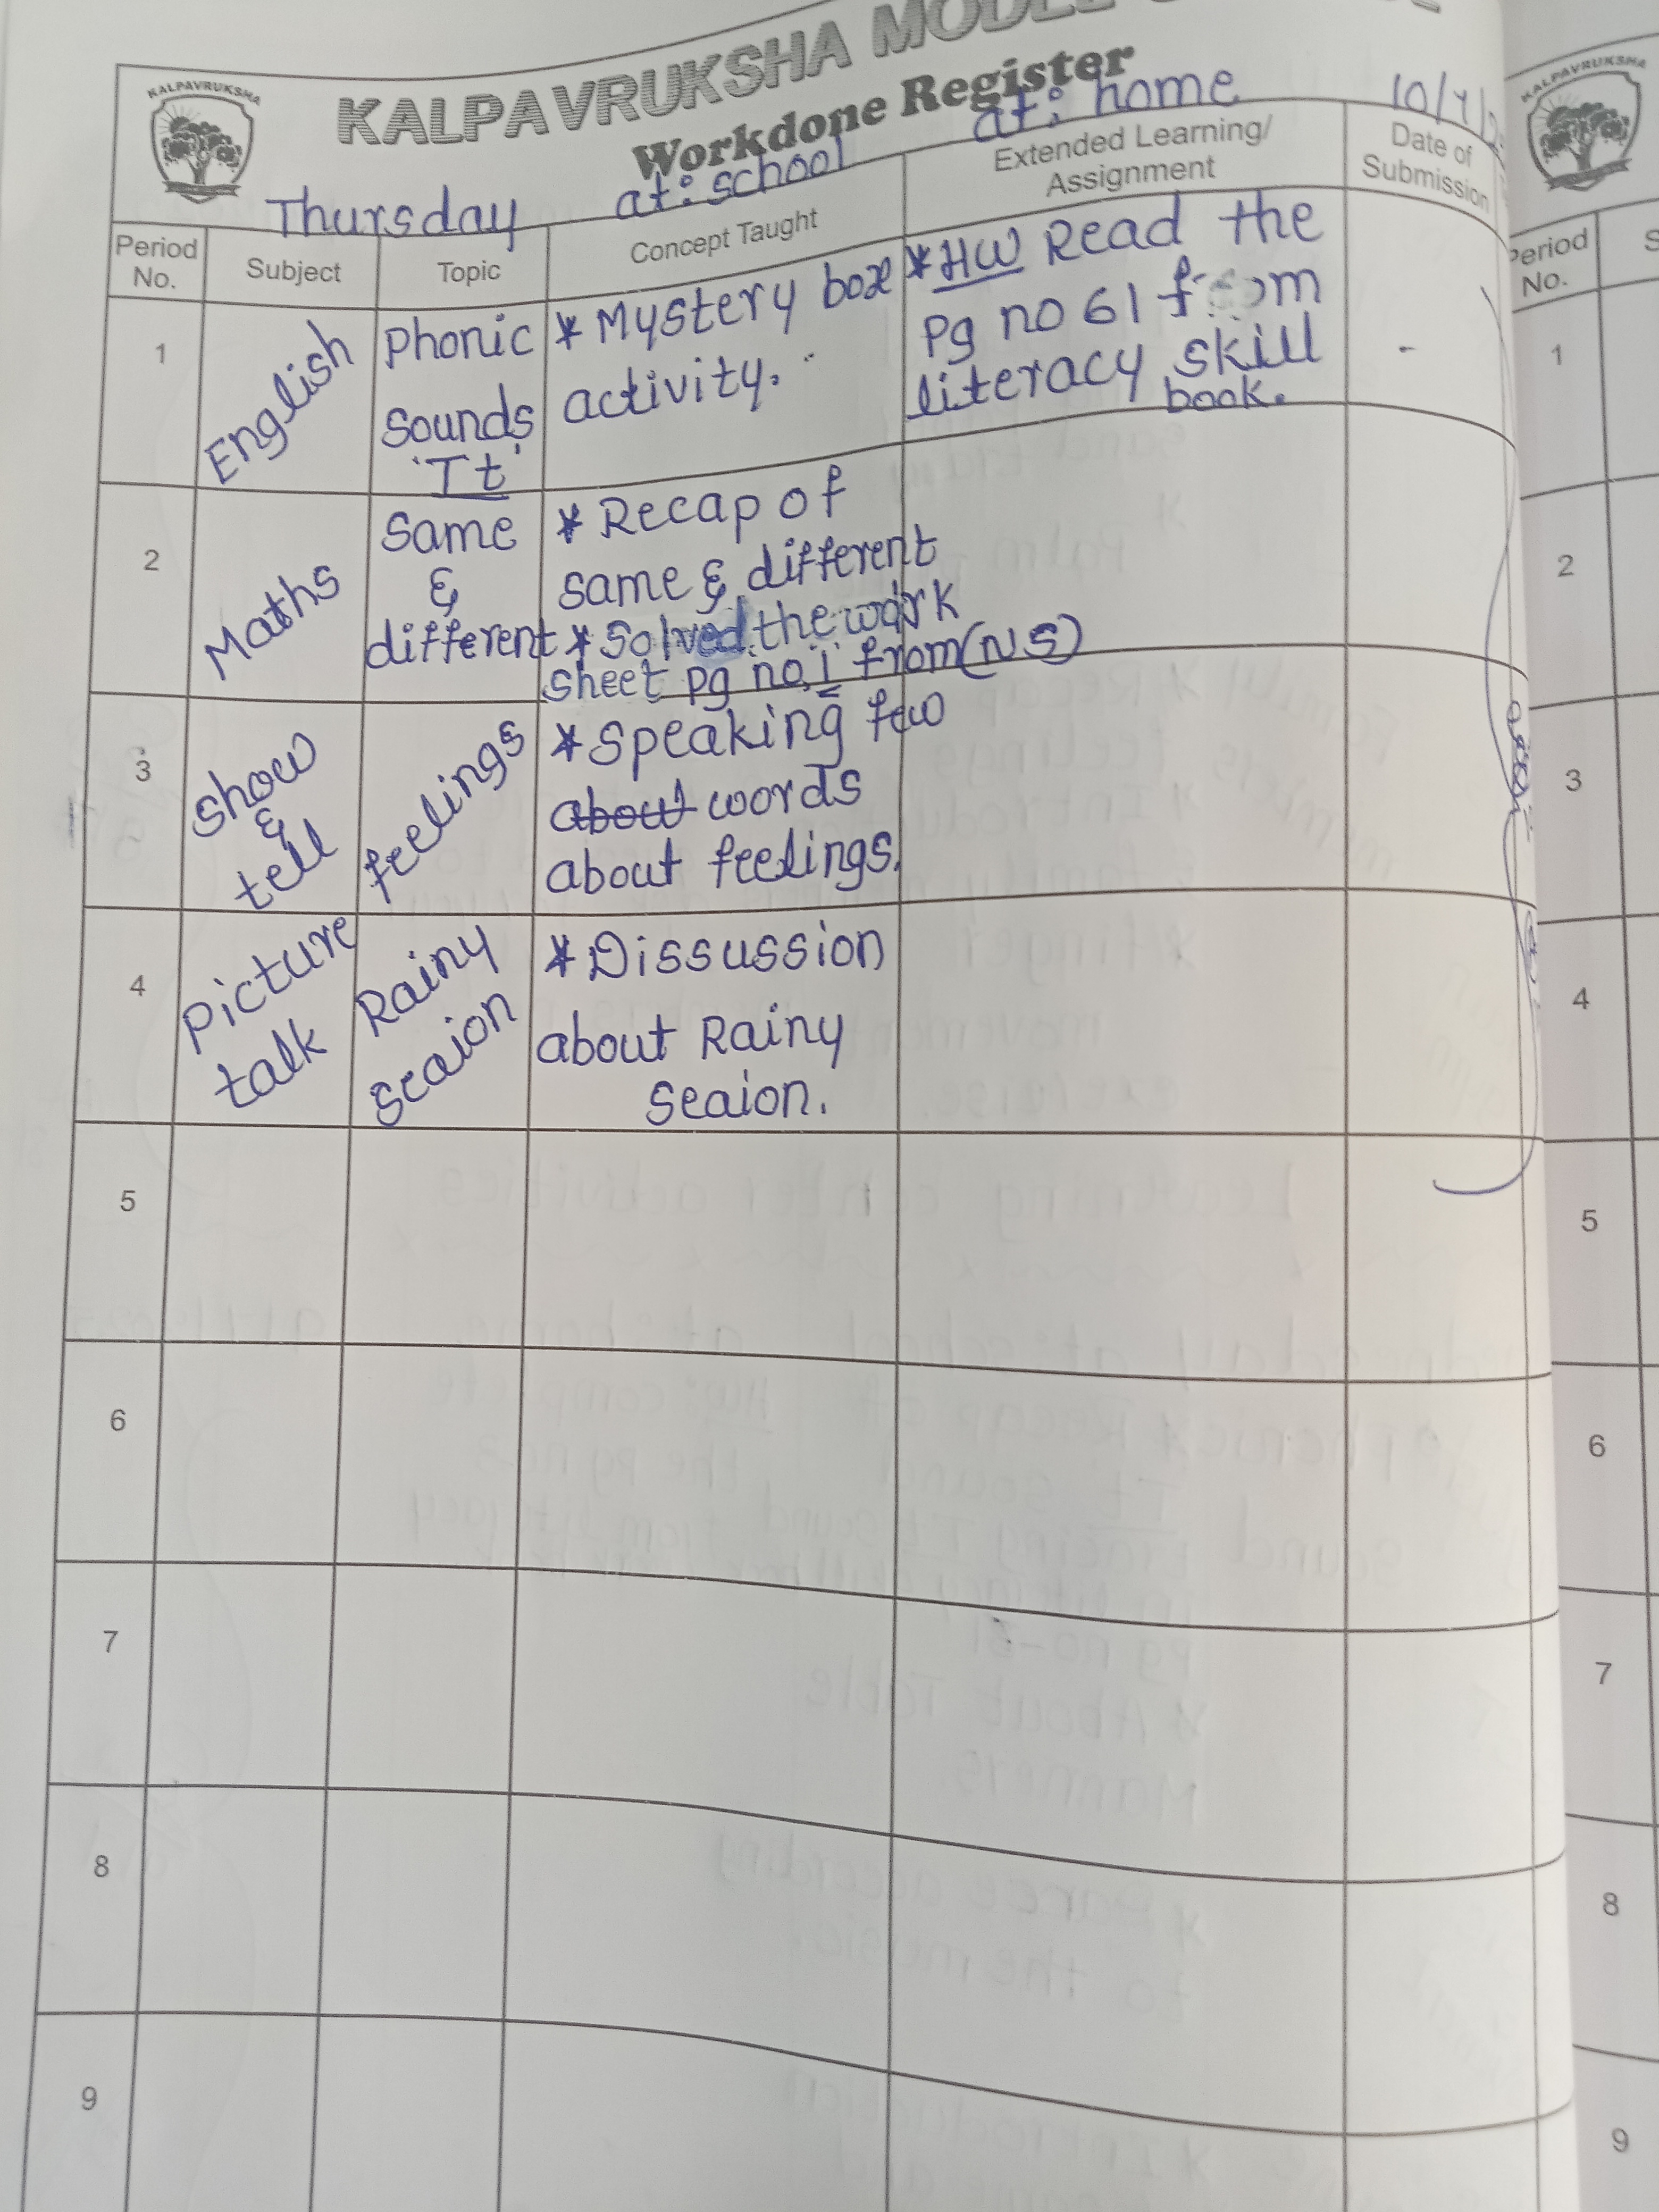 KALPAVRUKSHA
KALPAVRUKSHA
Workdone Register
Thursday at: school at: home 10/7/
Period No.
Subject
Topic
Concept Taught
Extended Learning/
Assignment
Date of
Submission
1
English
Phonic
Sounds
'Tt'
* Mystery box
activity.
* HW Read the
pg no 61 from
literacy skill
book.
-
2
Maths
Same
&
different
* Recap of
same & different
* Solved the work
sheet pg no, 1 from (NS)
3
Show
&
tell
feelings
* Speaking few
about words
about feelings.
4
Picture
talk
Rainy
seaion
* Dissussion
about Rainy
Seaion.
5
6
7
8
9
KALPAVRUKSHA
Period
No.
S
1
2
3
4
5
6
7
8
9